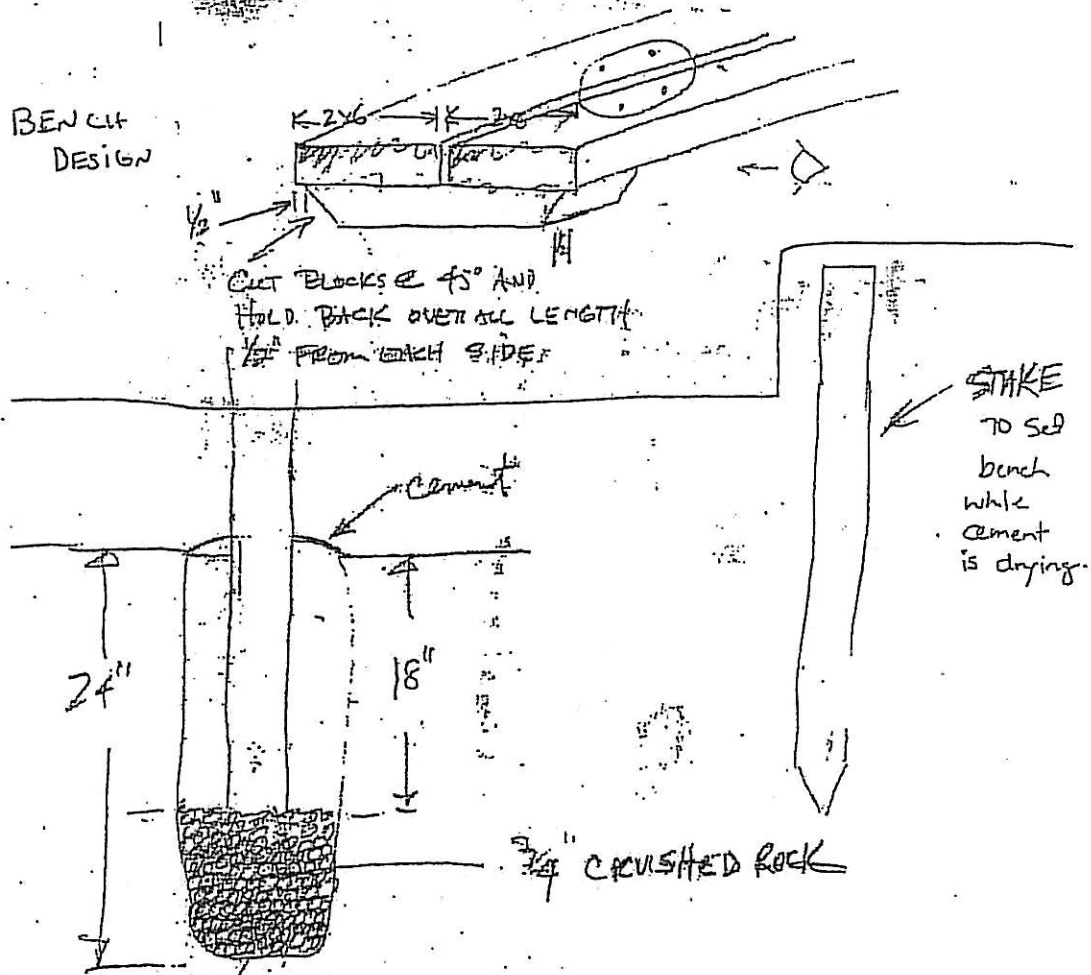 BENCH
DESIGN
2x6
1/2"
CUT BLOCKS @ 45° AND
HOLD BACK OVERALL LENGTH
1/2" FROM EACH SIDE
STAKE
TO Set
bench
while
cement
is drying.
cement
24"
18"
3/4" CRUSHED ROCK